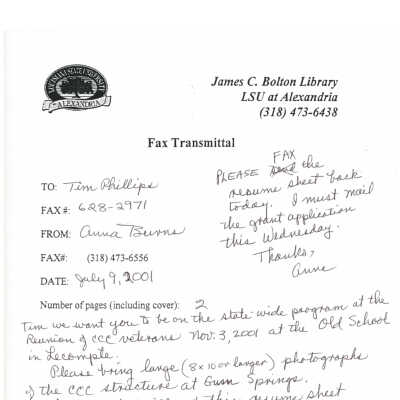 LOUISIANA STATE UNIVERSITY
ALEXANDRIA
James C. Bolton Library
LSU at Alexandria
(318) 473-6438
Fax Transmittal
PLEASE FAX the
resume sheet back
today. I must mail
the grant application
this Wednesday.
Thanks,
Anne
TO: Tim Phillips
FAX#: 628-2971
FROM: Anna Burns
FAX#: (318) 473-6556
DATE: July 9, 2001
Number of pages (including cover): 2
Tim we want you to be on the state-wide program at the
Reunion of CCC veterans Nov. 3, 2001 at the Old School
in Lecompte.
Please bring large (8x10 or larger) photographs
of the CCC structure at Gum Springs.
this resume sheet